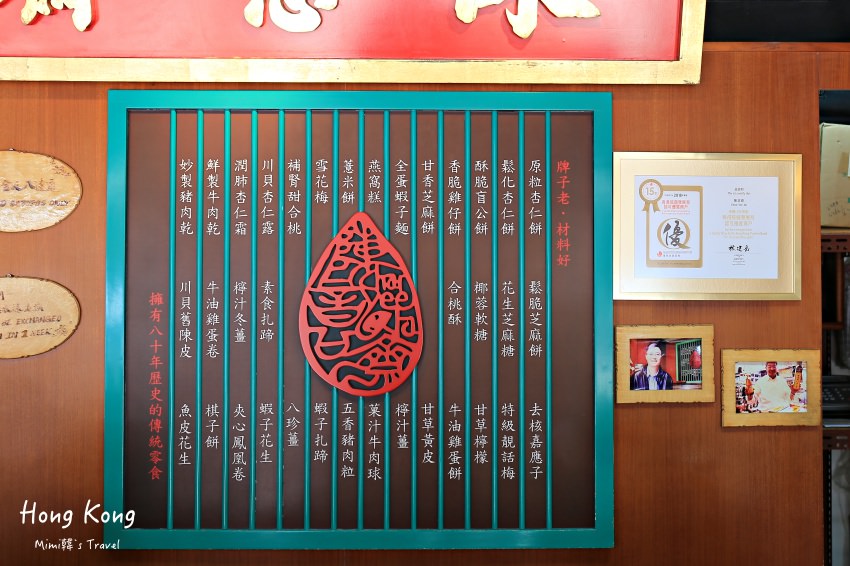 牌子老·材料好
原粒杏仁餅 鬆脆芝麻餅 去核嘉應子
鬆化杏仁餅 花生芝麻糖 特級靚話梅
酥脆盲公餅 椰蓉軟糖 甘草檸檬
香脆雞仔餅 合桃酥 牛油雞蛋餅
甘香芝麻餅 甘草黃皮
全蛋蝦子麵 檸汁薑
燕窩糕 菓汁牛肉球
薏米餅 五香豬肉粒
雪花梅 蝦子扎蹄
補腎甜合桃 八珍薑
川貝杏仁露 素食扎蹄 蝦子花生
潤肺杏仁霜 檸汁冬薑 夾心鳳凰卷
鮮製牛肉乾 牛油雞蛋卷 棋子餅
妙製豬肉乾 川貝舊陳皮 魚皮花生
擁有八十年歷史的傳統零食
優
EXCHANGED
IN 1 WEEK
Hong Kong
Mimi韓's Travel